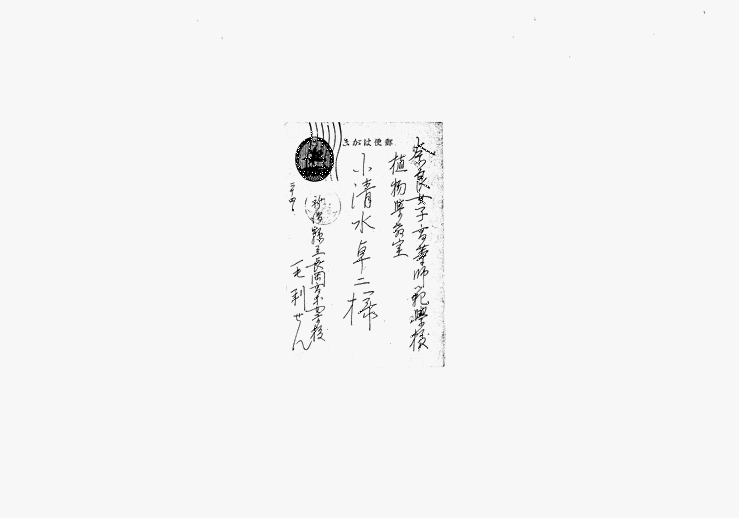 郵便はがき
奈良女子高等師範學校
植物學教室
小清水卓二様
新潟縣立長岡高等女学校
毛利せん